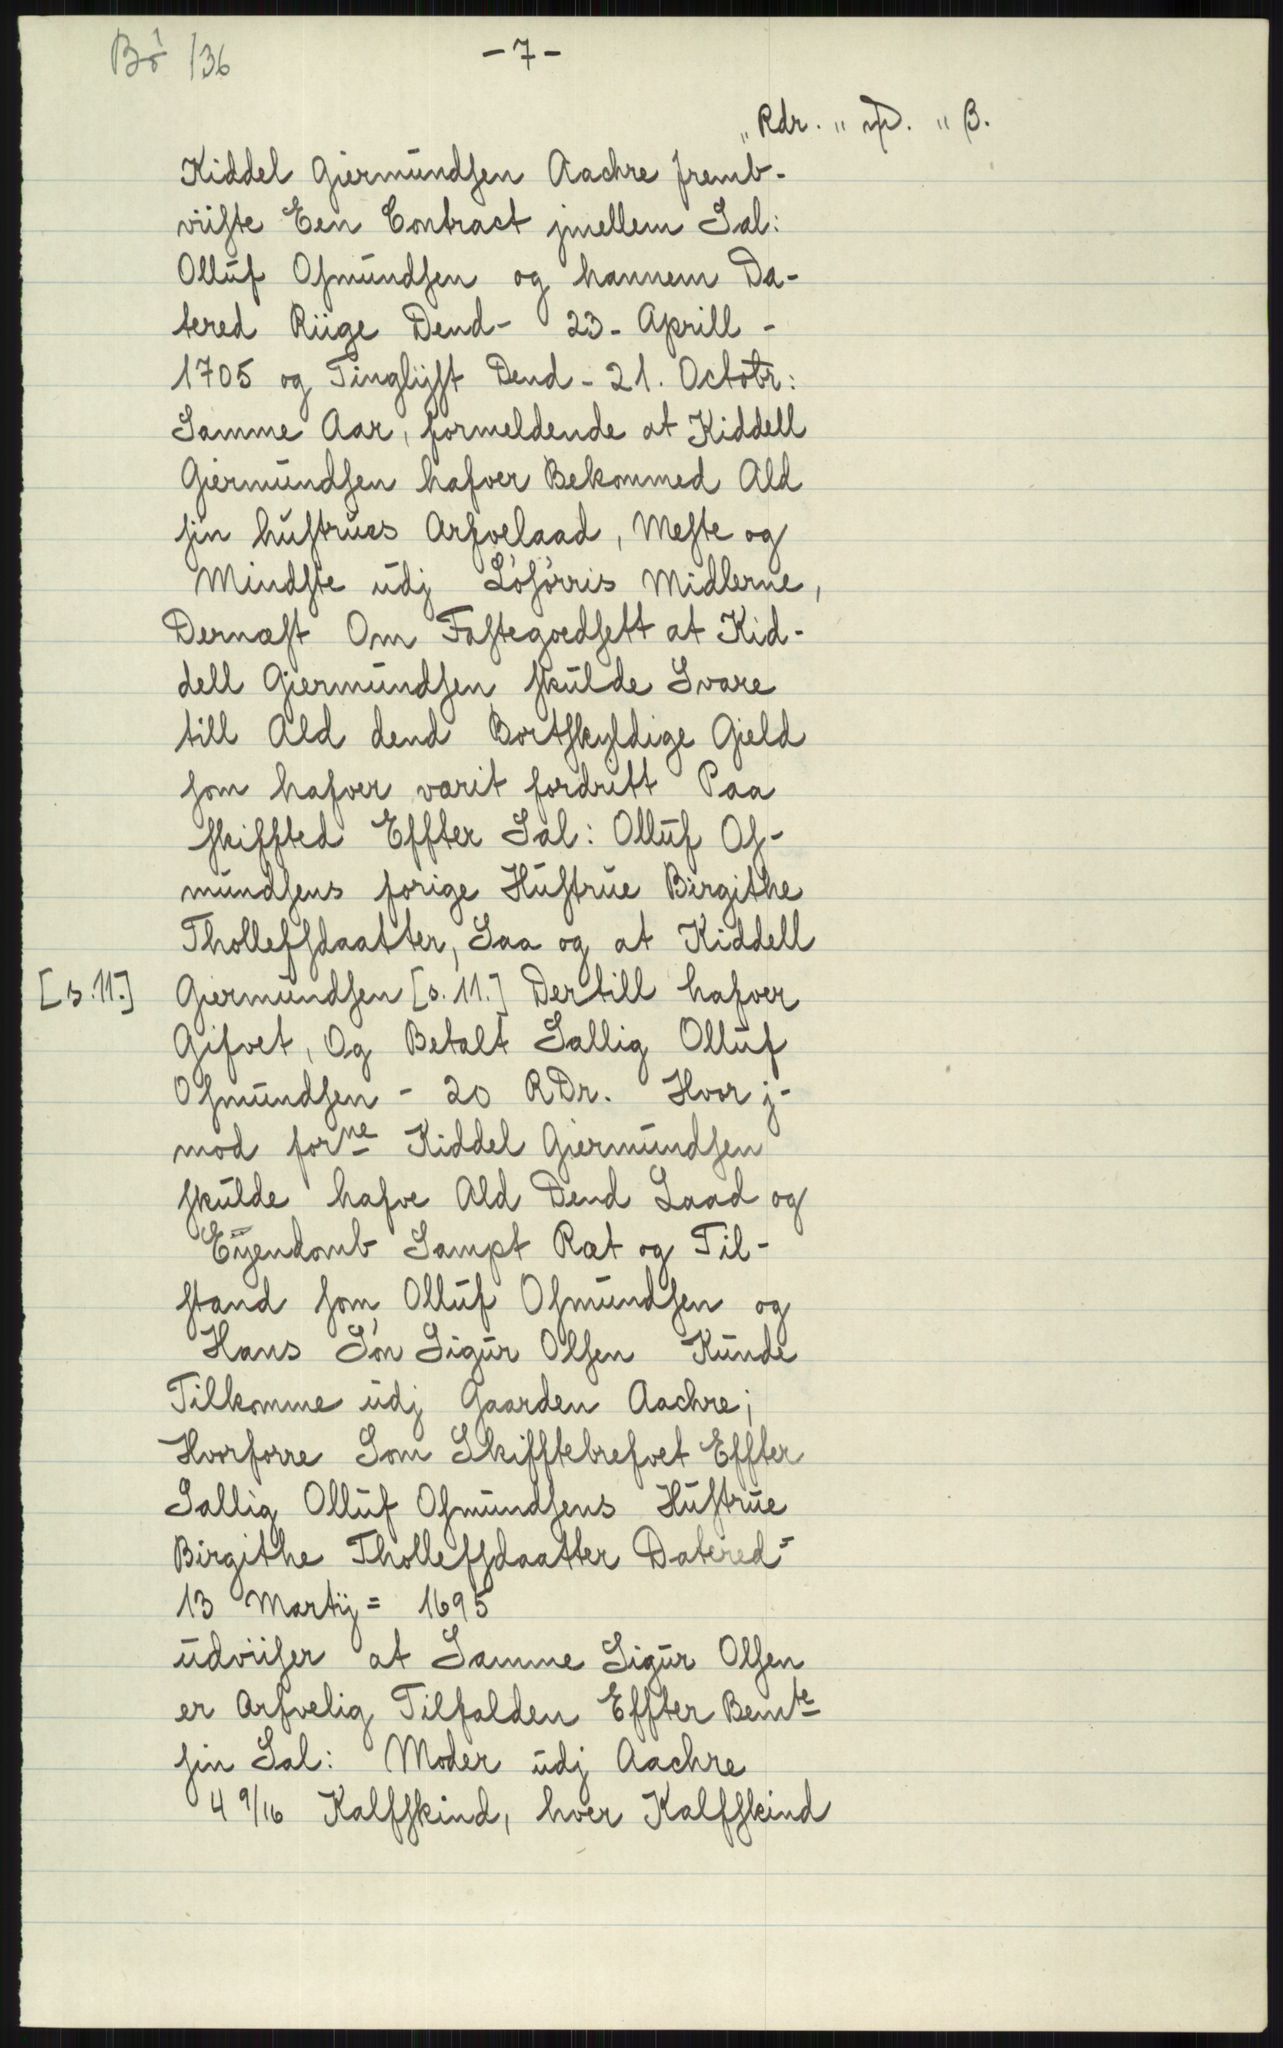 Bö /36
- 7 -
" Rdr. " mD. " β.
Kiddel Giermundsen Aachre fremb-
viiste Een Contract jmellem Sal:
Olluf Osmundsen og hannem Da-
tered Riige Dend - 23 - Aprill -
1705 og Tinglijst Dend - 21. Octobr:
Samme Aar, formeldende at Kiddell
Giermundsen hafver Bekommed Ald
sin hustrues Arfvelaad, Meste og
Mindste udj Lösörris Midlerne,
Dernæst Om Fastegoedsett at Kid-
dell Giermundsen skulde Svare
till Ald dend Bortskyldige Gield
som hafver værit fordrett Paa
skiffted Effter Sal: Olluf Os-
mundsens forige Hustrue Birgithe
Tholleffsdaatter, Saa og at Kiddell
[s. 11.] Giermundsen [s. 11.] Dertill hafver
Gifvet, Og Betalt Sallig Olluf
Osmundsen - 20 RDr. Hvor j-
mod forne Kiddel Giermundsen
skulde hafve Ald Dend Laad og
Eyendomb Sampt Ræt og Til-
stand som Olluf Osmundsen og
Hans Sön Sigur Olsen Kunde
Tilkomme udj Gaarden Aachre;
Hvorforre Som Skifftebrefvet Effter
Sallig Olluf Osmundsens Hustrue
Birgithe Tholleffsdaatter Datered =
13 Martij = 1695
udviiser at Samme Sigur Olsen
er Arfvelig Tilfalden Effter Bemte
sin Sal: Moder udj Aachre
4 9/16 Kalfskind, hver Kalfskind